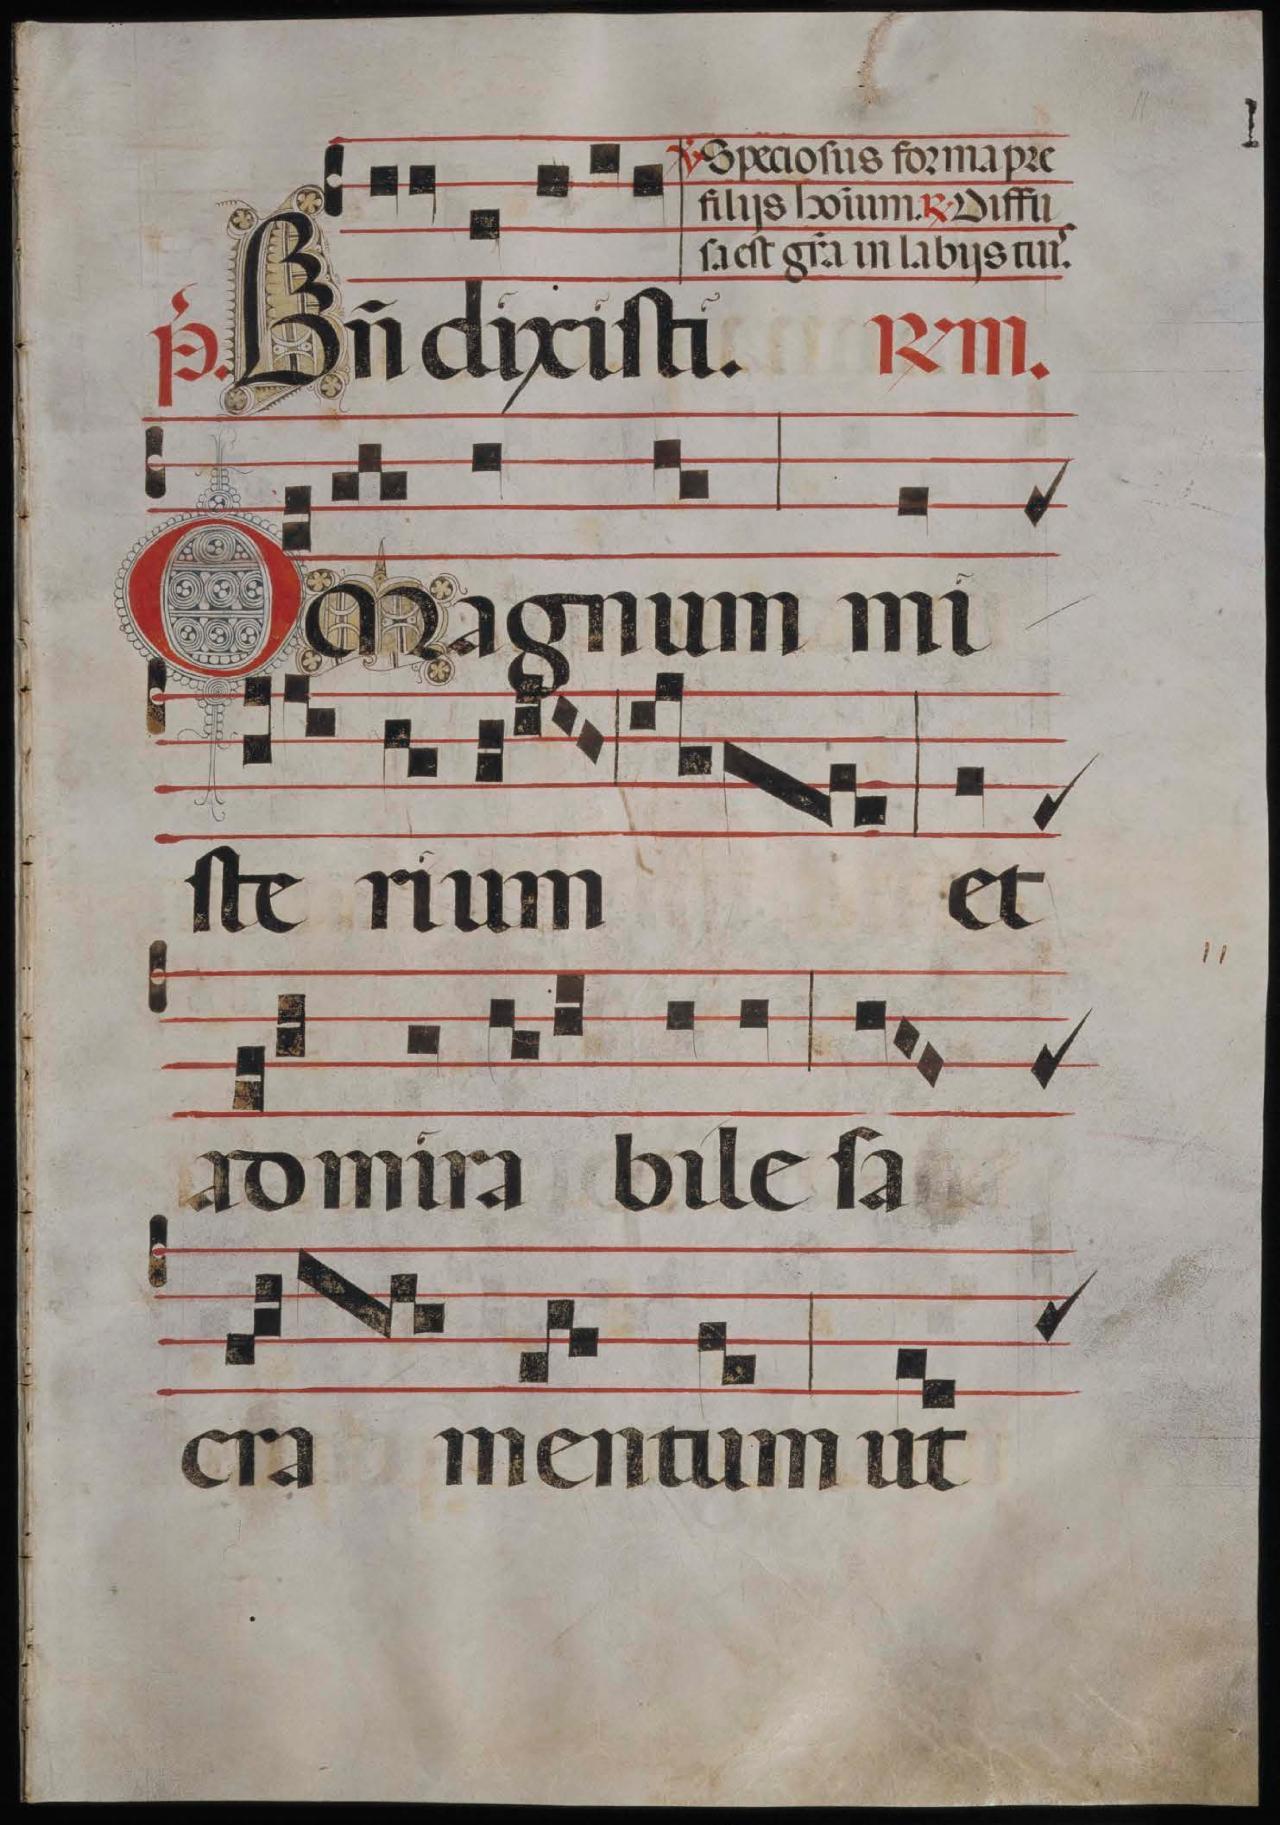 ℣ Speciosus forma pre
filijs hoı̄um. ℟ Diffu
sa est gr̄a in labijs tuis.
p̄s. Bn̄ dixisti. ℟ III.
O Magnum mi
ste rium et
admira bile sa
cra mentum ut
I